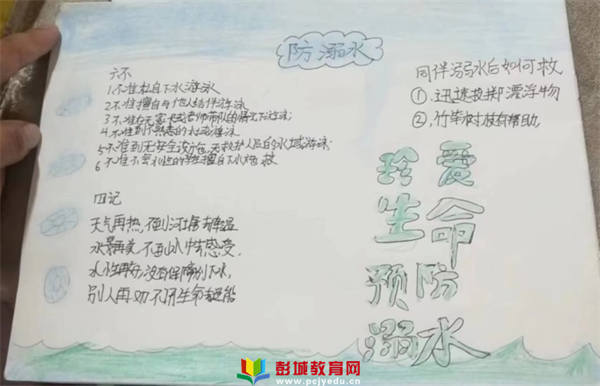 防溺水
六不
1 不准私自下水游泳
2. 不准擅自与他人结伴游泳
3. 不准在无家长或老师带队的情况下游泳;
4. 不准到不熟悉的水域游泳
5. 不准到无安全设施、无救护人员的水域游泳;
6 不准不会水性的学生擅自下水施救
四记
天气再热,不到江塘去降温
水景再美,不到水中去感受,
水性再好,没有保障别下水,
别人再劝,不用生命去逞能
同伴溺水后如何救
①、迅速投掷漂浮物
②、竹竿树枝有帮助
珍爱
生命
预防
溺水
彭城教育网
www.pcjyedu.cn